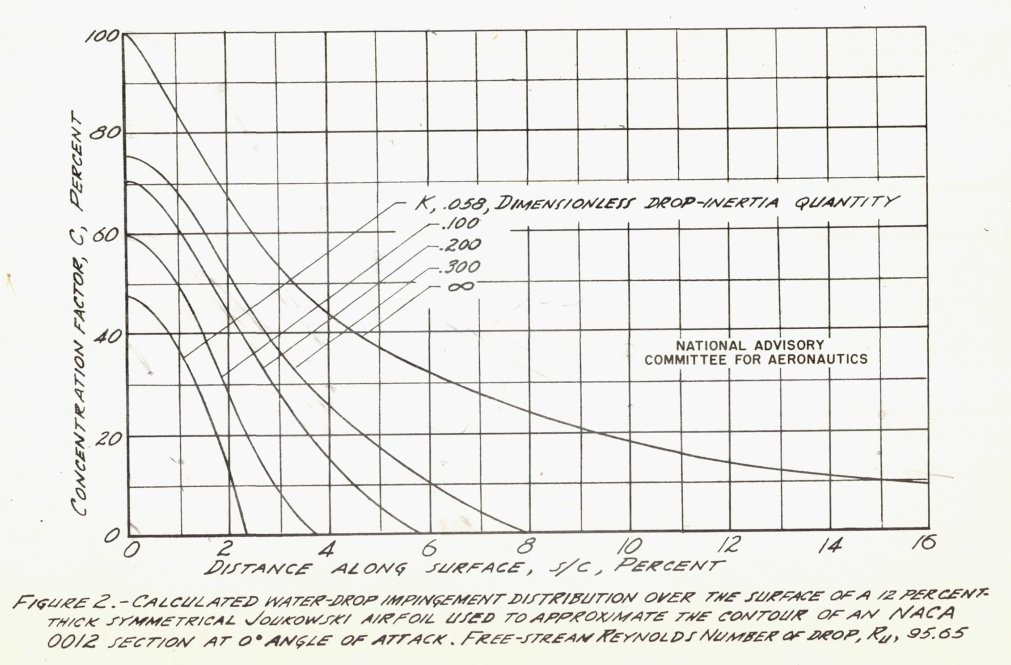 100
80
60
40
20
0
CONCENTRATION FACTOR, C, PERCENT
K, .058, DIMENSIONLESS DROP-INERTIA QUANTITY
.100
.200
.300
∞
NATIONAL ADVISORY
COMMITTEE FOR AERONAUTICS
0 2 4 6 8 10 12 14 16
DISTANCE ALONG SURFACE, S/C, PERCENT
FIGURE 2.-CALCULATED WATER-DROP IMPINGEMENT DISTRIBUTION OVER THE SURFACE OF A 12 PERCENT-
THICK SYMMETRICAL JOUKOWSKI AIRFOIL USED TO APPROXIMATE THE CONTOUR OF AN NACA
0012 SECTION AT 0° ANGLE OF ATTACK. FREE-STREAM REYNOLDS NUMBER OF DROP, RU, 95.65